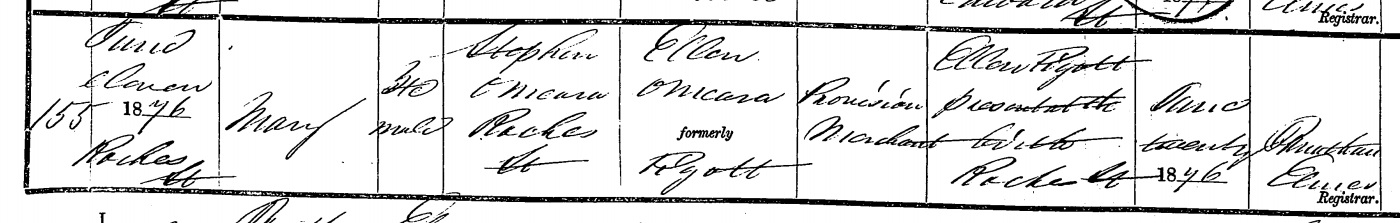 Registrar.
155
June
eleven
1876
Roches
St
Mary
Female
Stephen
O'Meara
Roches
St
Ellen
O'Meara
formerly
Pyott
Provision
Merchant
Ellen Pyott
present at the
birth
Roches St
June
twenty
1876
Elmes
Registrar.